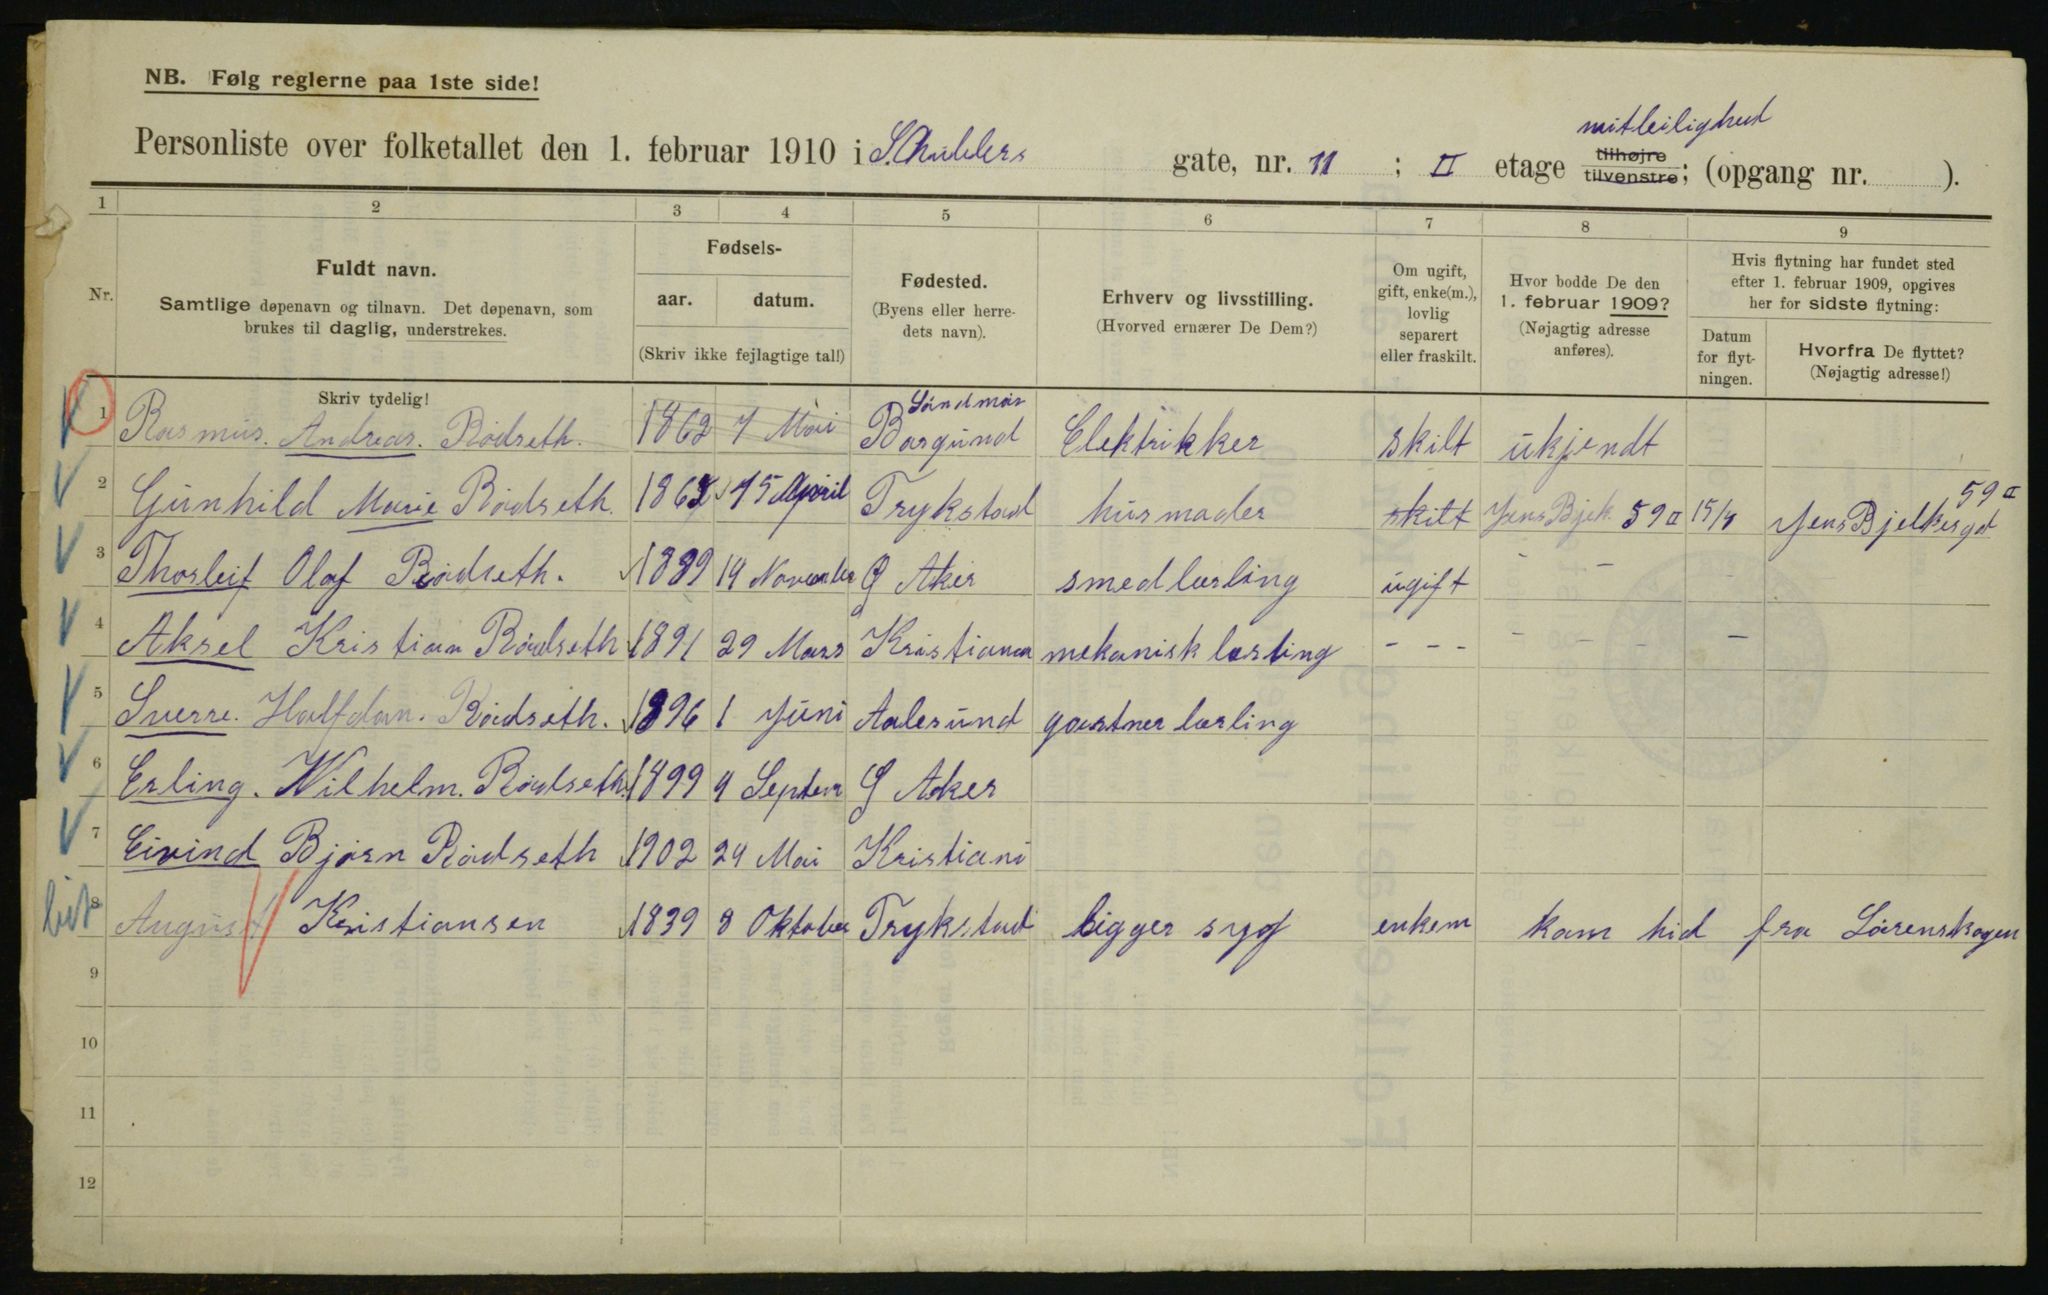 NB. Følg reglerne paa 1ste side!
mitleilighed
Personliste over folketallet den 1. februar 1910 i Schulders gate, nr. 11 ; II etage tilhøjre tilvenstre; (opgang nr. ).
1 2 3 4 5 6 7 8 9
Nr.
Fuldt navn.
Samtlige døpenavn og tilnavn. Det døpenavn, som
brukes til daglig, understrekes.
Skriv tydelig!
Fødsels-
aar. datum.
(Skriv ikke fejlagtige tal!)
Fødested.
(Byens eller herre-
dets navn).
Erhverv og livsstilling.
(Hvorved ernærer De Dem?)
Om ugift,
gift, enke(m.),
lovlig
separert
eller fraskilt.
Hvor bodde De den
1. februar 1909?
(Nøjagtig adresse
anføres).
Hvis flytning har fundet sted
efter 1. februar 1909, opgives
her for sidste flytning:
Datum
for flyt-
ningen.
Hvorfra De flyttet?
(Nøjagtig adresse!)
Søndmør
1 Rasmus. Andreas. Rödseth. 1862 7 Mai Borgund Elektrikker skilt ukjendt
59 II
2 Gunhild Marie Rödseth. 1863 15 April Trykstad husmoder skilt Jens Bjek. 59 II 15/4 Jens Bjelkesgd
3 Thorleif Olaf Rödseth. 1889 14 November Ø Aker smedlærling ugift - -
4 Aksel Kristian Rödseth 1891 29 Mars Kristiania mekanisk lærling - - - - - - -
5 Sverre. Halfdan. Rödseth. 1896 1 Juni Aalesund gartner lærling
6 Erling. Wilhelm. Rödseth. 1899 9 September Ø Aker
7 Eivind Bjørn Rödseth 1902 24 Mai Kristiani
8 August Kristiansen 1839 8 Oktober Trykstad ligger syg enkem kom hid fra Lörenskogen
9
10
11
12